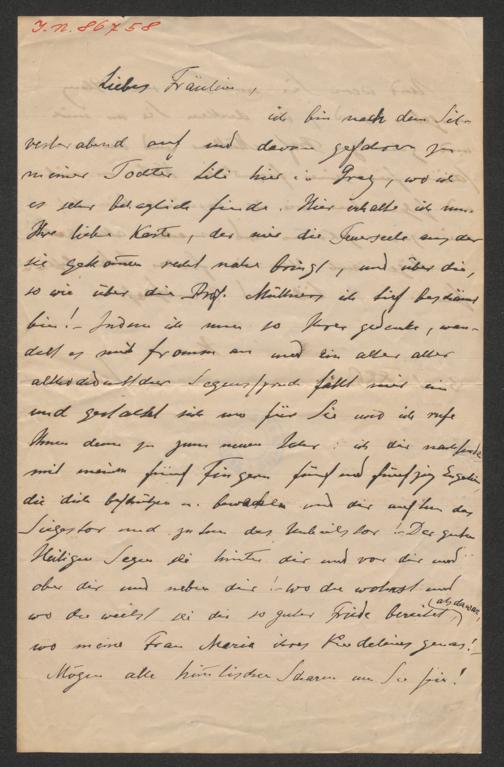 J.N. 86758
Liebes Fräulein,
ich bin nach dem Syl-
vesterabend auf und davon gefahren zu
meiner Tochter Lili hier in Graz, wo ich
es sehr behaglich finde. Hier erhalte ich nun
Ihre liebe Karte, der mir die aus der
sie gekommen recht nahe bringt, und über die,
so wie über die Prof. Müllners ich tief beschämt
bin! – Indem ich nun so Ihrer gedenke, wan-
delt es mich fromm an und ein alter alter
althochdeutscher Segensspruch fällt mir ein
und gestaltet sich um für Sie und ich rufe
Ihnen denn zu zum neuen Jahr: ich dir nachsende
mit meinen fünf Fingern fünf und fünfzig Engelin,
die dich beschützen u. bewachen und dir auftun das
Siegestor und zutun das Unheilstor! – Der guten
Heiligen Segen sei hinter dir und vor dir und
ober dir und neben dir! – wo du wohnst und
wo du weilst sei dir so guter Friede bereitet, (als da war,)
wo meine Frau Maria ihres Kindeleines genas! –
Mögen alle himmlischen Scharen um Sie sein!